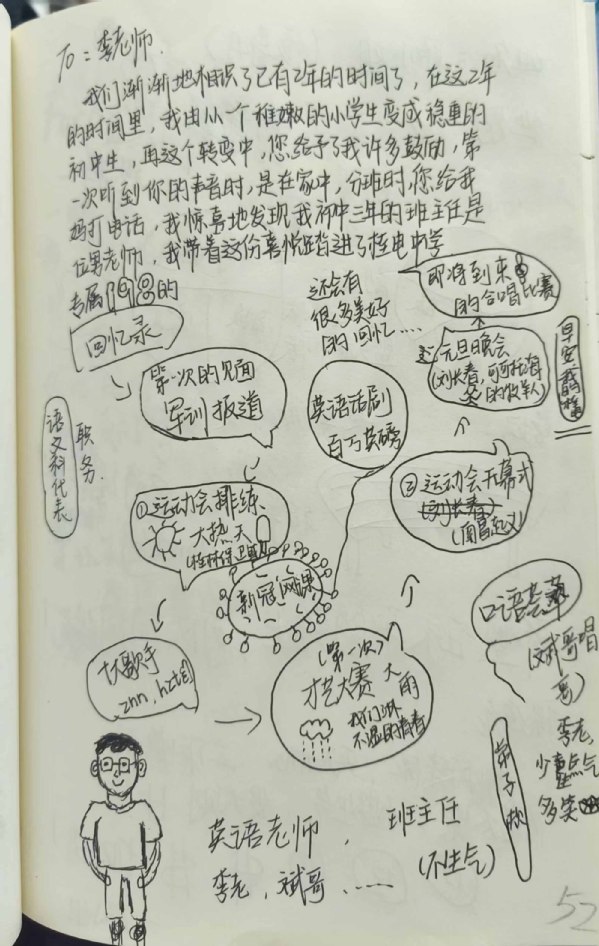 To：李老师.
我们渐渐地相识了已有2年的时间了，在这2年
的时间里，我由从一个稚嫩的小学生变成稳重的
初中生，再这个转变中，您给予了我许多鼓励，第
一次听到你的声音时，是在家中，分班时，您给我
妈打电话，我惊喜地发现我初中三年的班主任是
位男老师，我带着这份喜悦踏进了桂电中学
专属1918的
回忆录
第一次的见面
军训报道
还会有
很多美好
的回忆……
即将到来
的合唱比赛
元旦晚会
(刘长春，可可托海
的牧羊人)
早安我的桂
职务.
语文科代表
英语话剧
百万英磅
①运动会排练
大热天
(桂林保卫战)
新冠网课
②运动会开幕式
(刘长春)
(南昌起义)
口语竞赛
(斌哥唱
离)
十大歌手
znn，hztzj
(第一次)
才艺大赛
大雨
我们淋
不湿的青春
弟子
李老，
少生点气
多笑
英语老师，班主任
李老，斌哥，…… (不生气)
52